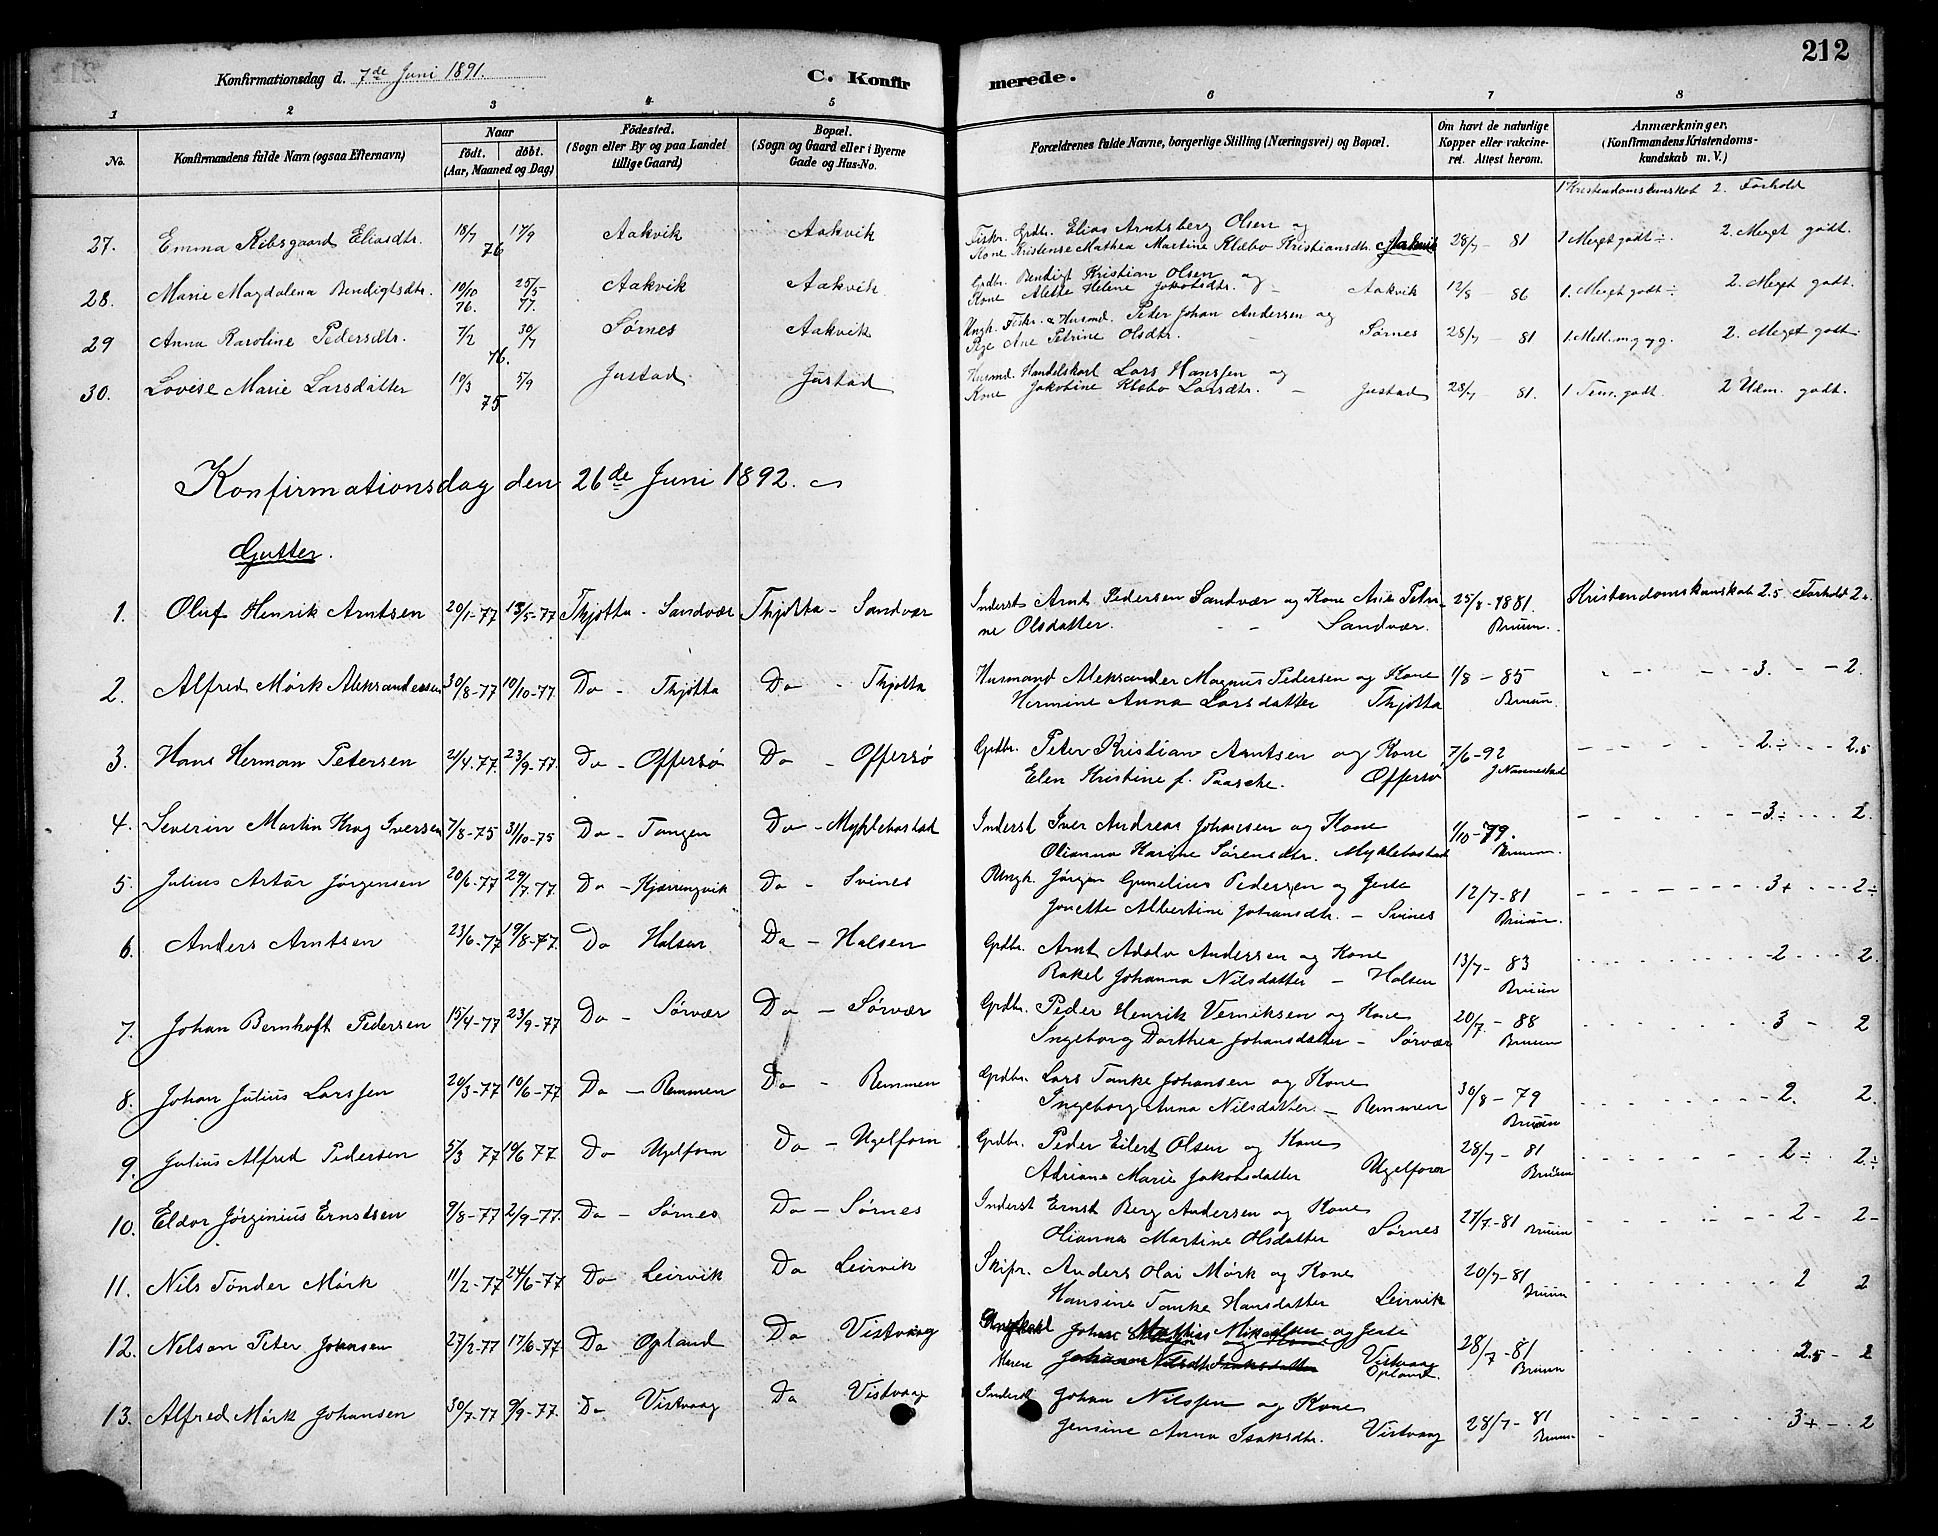 212
Konfirmationsdag d. 7de Juni 1891.
C. Konfirmerede.
1 2 3 4 5 6 7 8
No.
Konfirmandens fulde Navn (ogsaa Efternavn)
Naar
födt. döbt.
(Aar, Maaned og Dag)
Födested.
(Sogn eller By og paa Landet
tillige Gaard)
Bopæl.
(Sogn og Gaard eller i Byerne
Gade og Hus-No.
Forældrenes fulde Navne, borgerlige Stilling (Næringsvei) og Bopæl.
Om havt de naturlige
Kopper eller vakcine-
ret. Attest herom.
Anmærkninger,
(Konfirmandens Kristendoms-
kundskab m. V.)
1 Kristendomskunskab 2. Forhold
27. Emma Ribsgaard Eliasdtr. 18/7 17/9 76 Aakvik Aakvik Fiskr. Grdbr. Elias Arntsberg Olsen og
Kone Kristense Mathea Martine Klebo Kristiansdtr. Aakvik 28/7 - 81 1 Meget godt ÷. 2. Meget godt.
28. Marie Magdalena Bendigtsdtr. 10/10 76. 25/5 77. Aakvik Aakvik Grdbr. Bendigt Kristian Olsen og
Kone Alette Helene Jakobsdtr. - Aakvik 12/8 - 86 1. Meget godt ÷. 2. Meget godt.
29 Anna Karoline Pedersdtr. 7/2 30/7 76. Sørnes Aakvik Ungk. Fiskr. & Husmd. Peter Johan Andersen og
Pige Ane Petrine Olsdtr. - Sørnes 28/7 - 81 1. Mell. m. g og g. 2. Meget godt.
30. Lovise Marie Larsdatter 10/3 5/9 75 Justad Justad Husmd. Handelskarl Lars Hanssen og
Kone Jakobine Klebo Larsdtr. - Justad 28/7 - 81. 1 Tem. godt. 2 Udm. godt.
Konfirmationsdag den 26de Juni 1892.
Gutter.
1. Oluf Henrik Arntsen 20/1-77 13/5-77 Thjøtta - Sandvær Thjøtta - Sandvær Inderst Arnt Pedersen Sandvær og Kone Ane Petri-
ne Olsdatter. - - Sandvær. 25/8-1881. Bruun. Kristendomskunskab 2.5 Forhold 2.
2. Alfred Mørk Aleksandersen 30/8-77 10/10-77. Do - Thjøtta Do - Thjøtta Husmand Aleksander Magnus Pedersen og Kone
Hermine Anna Larsdatter Thjøtta 1/8 - 85 Bruun. 3. - - 2.
3. Hans Herman Petersen 21/4-77. 23/9-77. Do - Offersø Do - Offersø Grdbr. Peter Kristian Arntsen og Kone
Elen Kristine f. Paasche. Offersø 7/6-92 2.÷ - - - 2.5
4. Severin Martin Krog Iversen 7/8-75 31/10-75 Do - Tangen Do - Myklebostad Inderst Iver Andreas Johansen og Kone
Olianna Karine Sørensdtr. Myklebostad 1/10-79. Bruun. 3÷ 2.
5. Julius Artur Jørgensen 20/6-77 29/7-77. Do - Kjærringvik Do - Svines Ungk. Jørgen Gunelius Pedersen og Jente
Jonette Albertine Johansdtr. - Svines 12/7-81 Bruun. 3+ - - - 2÷
6. Anders Arntsen 23/6-77 19/8-77. Do Halsen Do - Halsen Grdbr. Arnt Adolv Andersen og Kone
Rakel Johanna Nilsdatter - Halsen 13/7 - 83 Bruun 2 2.
7. Johan Bernhoft Pedersen 15/4-77 23/9-77 Do - Sørvær Do - Sørvær Grdbr. Peder Henrik Verniksen og Kone
Ingeborg Dorthea Johansdatter - Sørvær 20/7 - 88 Bruun 3 - 2
8. Johan Julius Larssen 20/3-77 10/6-77 Do - Remmen Do - Remmen Grdbr. Lars Tanke Johansen og Kone
Ingeborg Anna Nilsdatter. - Remmen 30/8 - 79 Bruun 2. 2.
9. Julius Alfred Pedersen 5/3 77 10/6 77 Do Ugelforn Do - Ugelforn Grdbr. Peder Eilert Olsen og Kone
Adriane Marie Jakobsdatter Ugelforn 28/7 - 81 Bruun 2÷ 2.÷
10. Eldor Jørginius Ernstsen 9/8-77 2/9-77. Do - Sørnes Do - Sørnes Inderst Ernst Berg Andersen og Kone
Olianna Martine Olsdatter Sørnes 27/7-81 Bruun 2 - 2-
11. Nils Tønder Mørk 11/2-77 24/6-77 Do Leirvik Do Leirvik Skipr. Anders Olai Mørk og Kone
Hansine Tanke Hansdatter Leirvik 20/7-81 Bruun 2 2
12. Nelson Peter Johansen 27/2-77 17/6-77 Do Opland Do Vistvaag Johan Mathias Mikalsen og Jente
Vistvaag Opland. 28/7 - 81 Bruun 2.5 - 2
13. Alfred Mørk Johansen 30/7-77 9/9-77. Do Vistvaag Do Vistvaag Inderst Johan Nilssen og Kone
Jensine Anna Isaksdtr. Vistvaag 28/7 - 81 Bruun 3+ - - 2